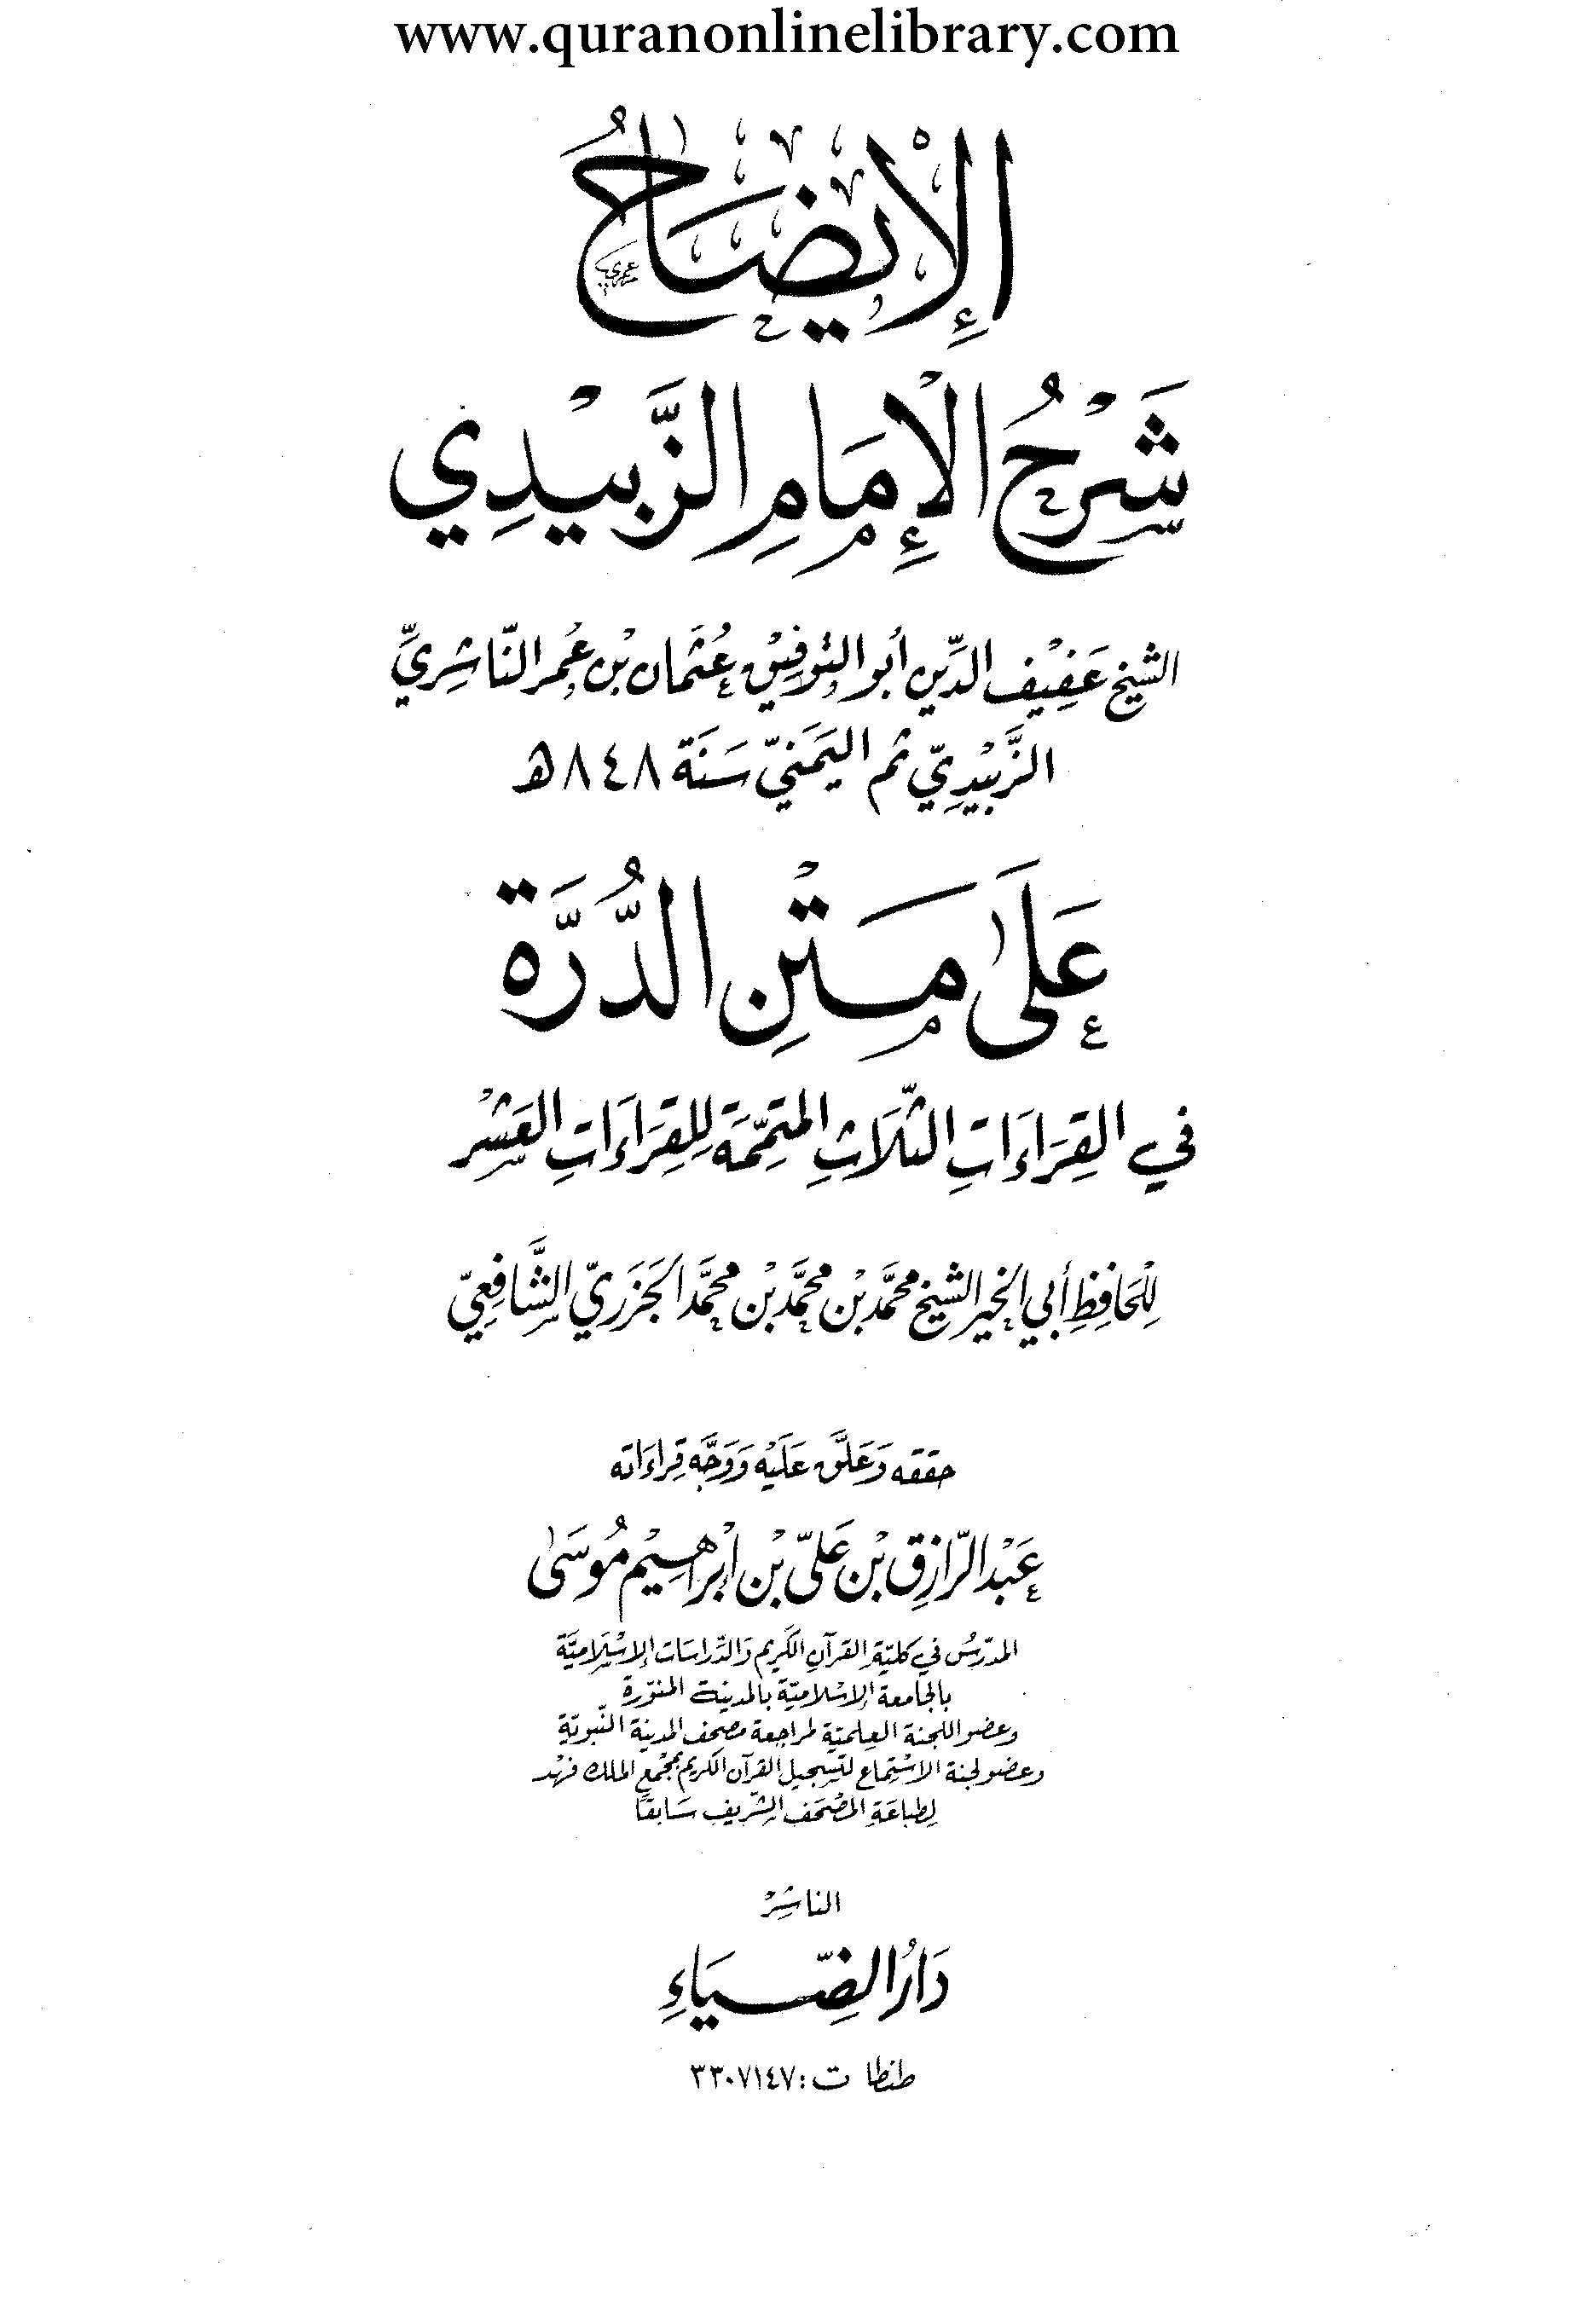 www.quranonlinelibrary.com
الإِيضَاحُ
شَرْحُ الإِمَامِ الزَّبِيْدِي
الشيخ عَفِيْف الدِّين أبو التوفِيْق عُثمَان بْن عُمر النَّاشِرِيِّ
الزَّبِيْدِيّ ثم اليَمَنيّ سَنَة ٨٤٨ هـ
عَلَى مَتْنِ الدُّرَّة
في القِرَاءَاتِ الثَّلَاثِ المتِمِّمَة لِلقِرَاءَاتِ العَشْر
لِلْحَافِظِ أبي الخير الشيخ محمَّد بْن محمَّد بْن محمَّد الجَزَريّ الشَّافِعِيّ
حققه وَعَلَّق عَلَيْه وَوَجَّه قِراءَاته
عَبْد الرّازِق بْن عَليّ بْن إبْراهِيْم مُوسَىٰ
المدّرسُ في كليّةِ القرآنِ الكَريم وَالدِّراسَات الإسْلَاميَّة
بالجامعة الإسْلاميّة بالمدينة المنوّرة
وعضو اللجنة العِلميّة لمراجعة مصحف المدينة النّبويّة
وعضو لجنة الاسْتِماع لتسجيل القرآن الكريم بمجْمع الملك فهْد
لِطباعَةِ المصْحَف الشّريف سَابقًا
الناشِرْ
دَارُ الضِّيَاءِ
طنطا ت: ٣٣٠٧١٤٧